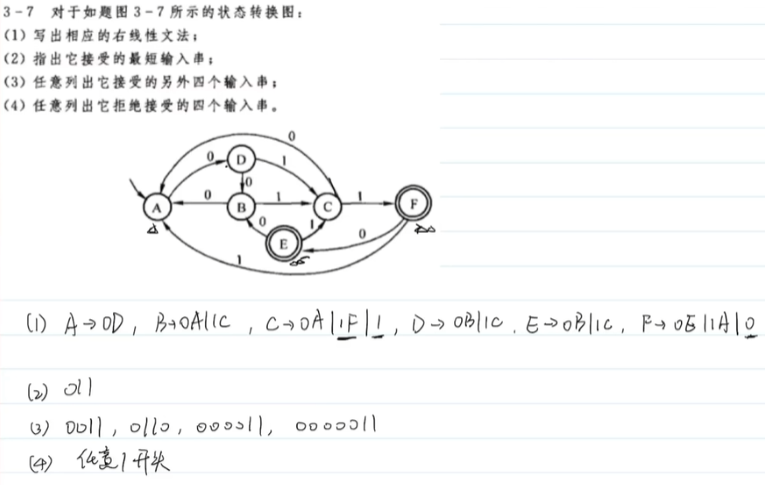 3-7 对于如题图3-7所示的状态转换图：
(1) 写出相应的右线性文法；
(2) 指出它接受的最短输入串；
(3) 任意列出它接受的另外四个输入串；
(4) 任意列出它拒绝接受的四个输入串。
0
0 D 1
0
A 0 B 1 C 1 F
0 1
E 0
1
(1) A→0D, B→0A|1C, C→0A|1F|1, D→0B|1C, E→0B|1C, F→0E|1A|0
(2) 011
(3) 0011, 0110, 000011, 0000011
(4) 任意1开头